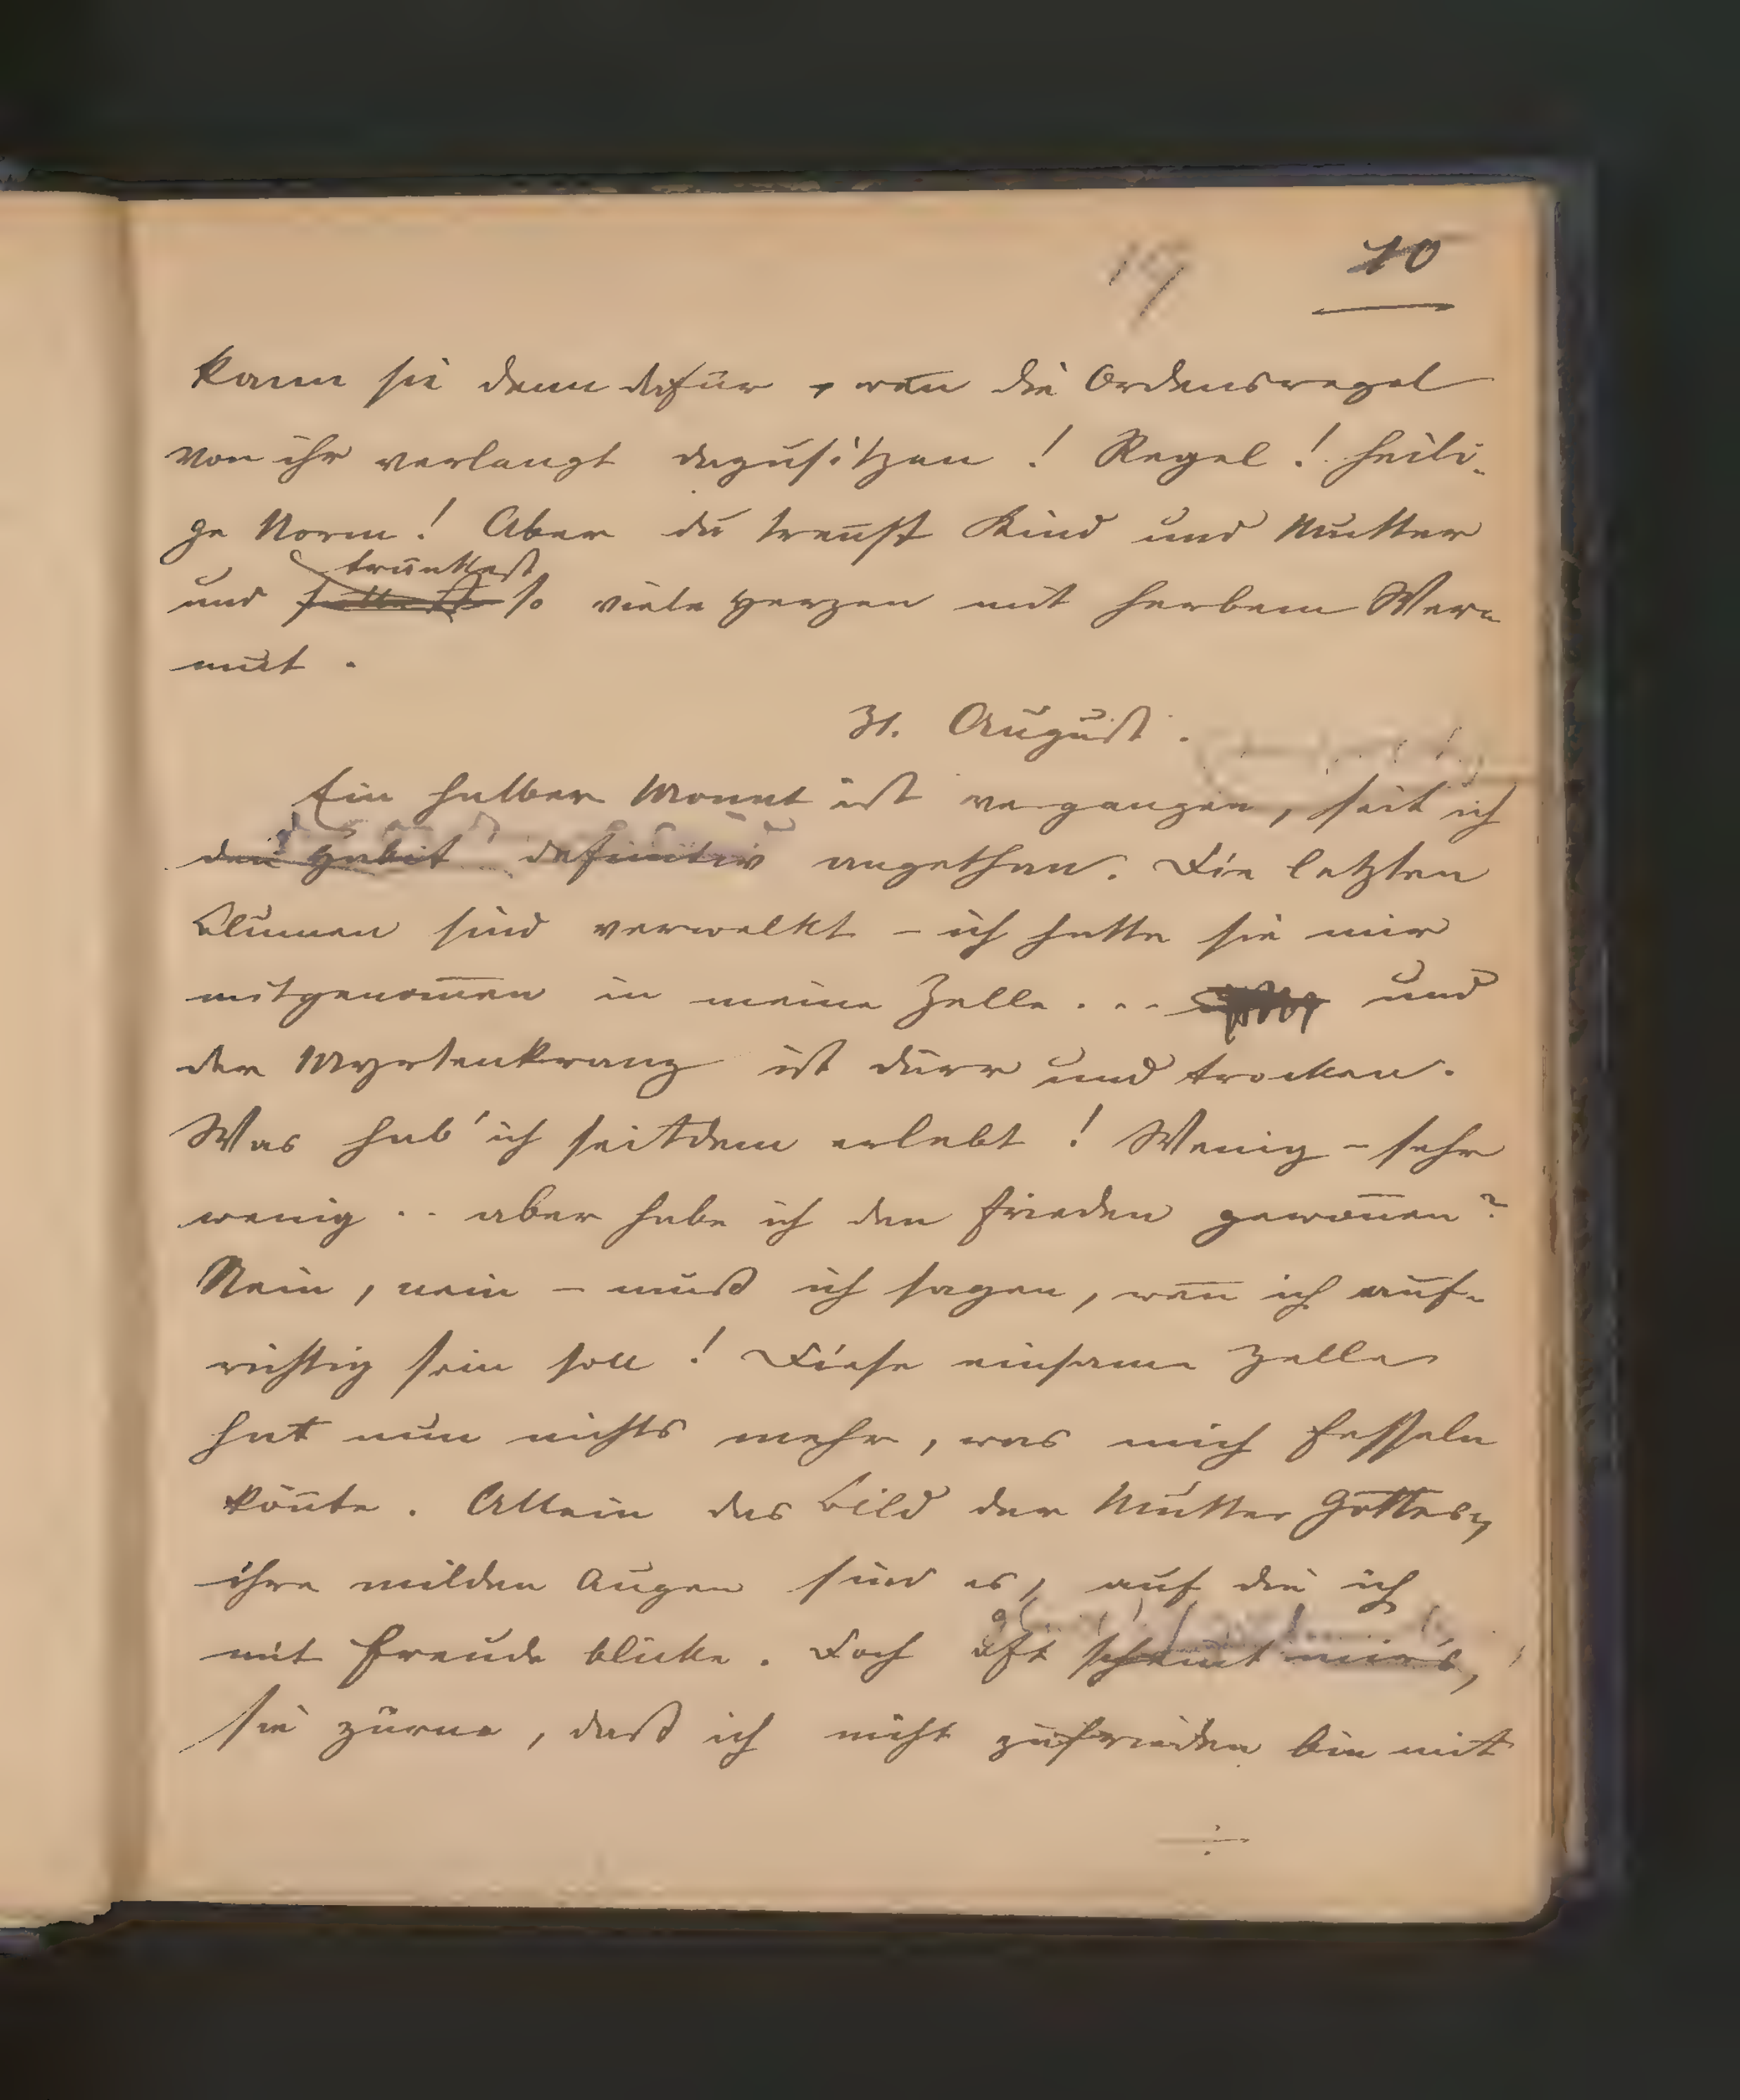 19 10
kann sie denn dafür, wen̄ die Ordensregel
von ihr verlangt dazusitzen! Regel! heili-
ge Norm! Aber du tren̄st Kind und Mutter
tränktest
und so viele Herzen mit herbem Wer-
mut.
31. August.
Ein halber Monat ist vergangen, seit ich
den Habit definitiv angethan. Die letzten
Blumen sind verwelkt – ich hatte sie mir
mitgenom̄en in meine Zelle ... und
der Myrtenkranz ist dürr und trocken.
Was hab' ich seitdem erlebt! Wenig – sehr
wenig .. aber habe ich den Frieden gewon̄en?
Nein, nein – muß ich sagen, wen̄ ich auf-
richtig sein soll! Diese einsame Zelle
hat nun nichts mehr, was mich fesseln
kön̄te. Allein das Bild der Mutter Gottes,
ihre milden Augen sind es, auf die ich
mit Freude blicke. Doch oft scheint mir's,
sie zürne, daß ich nicht zufrieden bin mit